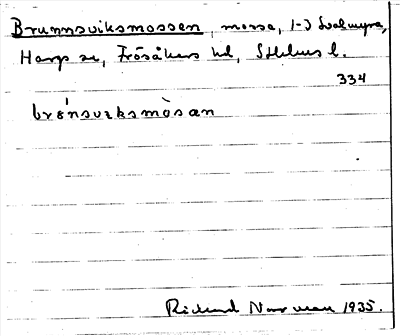 Brunnsviksmossen, mosse, 1-3 Svalmyra,
Harg sn, Frösåkers hd, Sthlms l.
334
brónsviksmòsan
Rickard Norrman 1935.